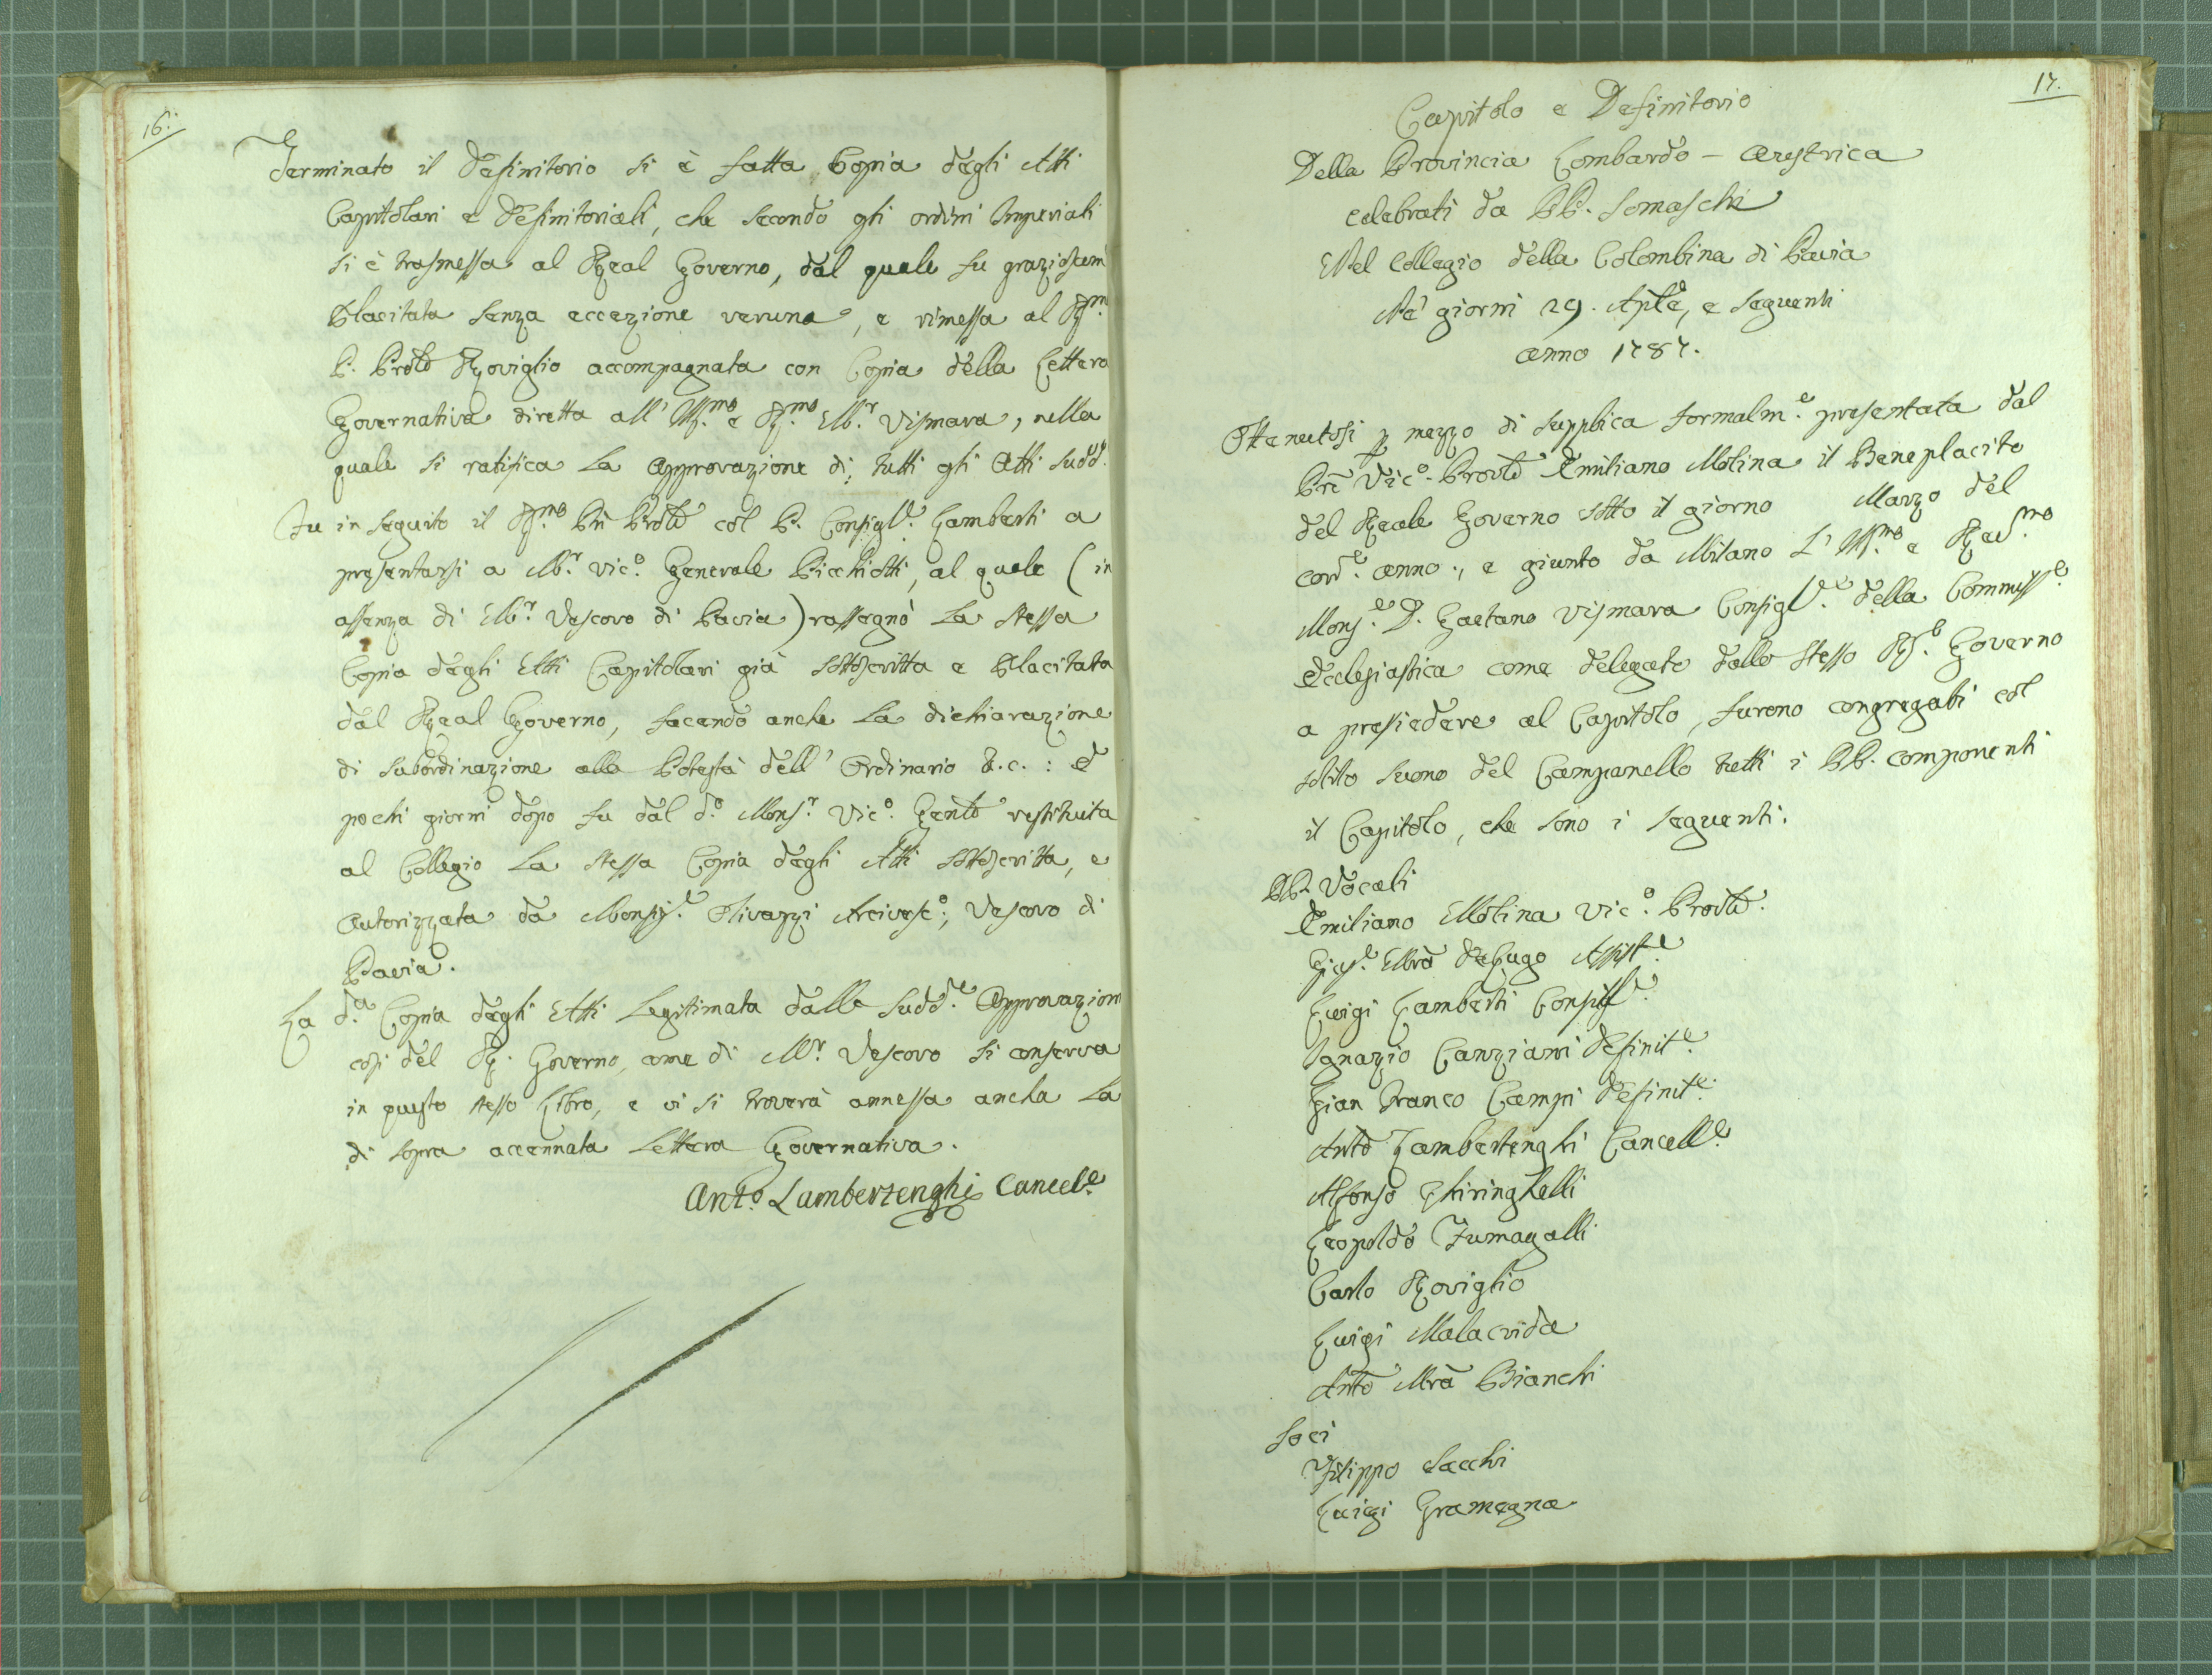 16.
Terminato il Definitorio si è fatta Copia degli Atti
Capitolari e Definitoriali, che secondo gli ordini Imperiali
si è trasmessa al Real Governo, dal quale fu graziosam
Placitata senza eccezione veruna, e rimessa al Rm.
P. Prole Roviglio accompagnata con Copia della Lettera
Governativa diretta all' Ill.mo e R.mo M.r Vismara, nella
quale si ratifica la approvazione di tutti gli Atti sudd.
Fu in seguito il R.mo Pre Prole col P. Consigl.e Lamberti a
presentarsi a M.r Vic.o Generale Picchiotti, al quale (in
assenza di M.r Vescovo di Pavia) rassegnò la stessa
Copia degli Atti Capitolari già sottoscritta e Placitata
dal Real Governo, facendo anche la dichiarazione
di subordinazione alla Potestà dell' Ordinario &.c.: e
pochi giorni dopo fu dal d.o Mons.r Vic.o Genle restituita
al Collegio la stessa Copia degli Atti sottoscritta, e
autorizzata da Monsig.e Olivazzi Arcivesc.o, Vescovo di
Pavia.
La d.a Copia degli Atti Legitimata dalle sudd.e Approvazioni
così del R. Governo, come di M.r Vescovo si conserva
in questo stesso Libro, e vi si troverà annessa anche la
di sopra accennata Lettera Governativa.
Ant.o Lambertenghi Cancel.e
17.
Capitolo e Definitorio
Della Provincia Lombardo - Austrica
celebrati da PP. Somaschi
Nel Collegio della Colombina di Pavia
Ne' giorni 29. Aple, e seguenti
anno 1787.
Ottenutosi p mezzo di supplica formalm.e presentata dal
Pre Vic.o Prov.le Emiliano Molina il Beneplacito
del Reale Governo sotto il giorno Marzo del
corr.e anno, e giunto da Milano L' Ill.mo e Rev.mo
Mons.e D. Gaetano Vismara Consigl.e della Commiss.e
Ecclesiastica come delegato dallo stesso R. Governo
a presiedere al Capitolo, furono congregati col
solito suono del Campanello tutti i PP. componenti
il Capitolo, che sono i seguenti.
PP. Vocali
Emiliano Molina Vic.o Prov.le
Gius.e Mra DeLugo Assist.e
Luigi Lamberti Consigl.e
Ignazio Canziani Definit.e
Gian Franco Campi Definit.e
Anto Lambertenghi Cancell.e
Alfonso Ghiringhelli
Leopoldo Fumagalli
Carlo Roviglio
Luigi Malacrida
Anto Mra Bianchi
Soci
Filippo Sacchi
Luigi Gramegna